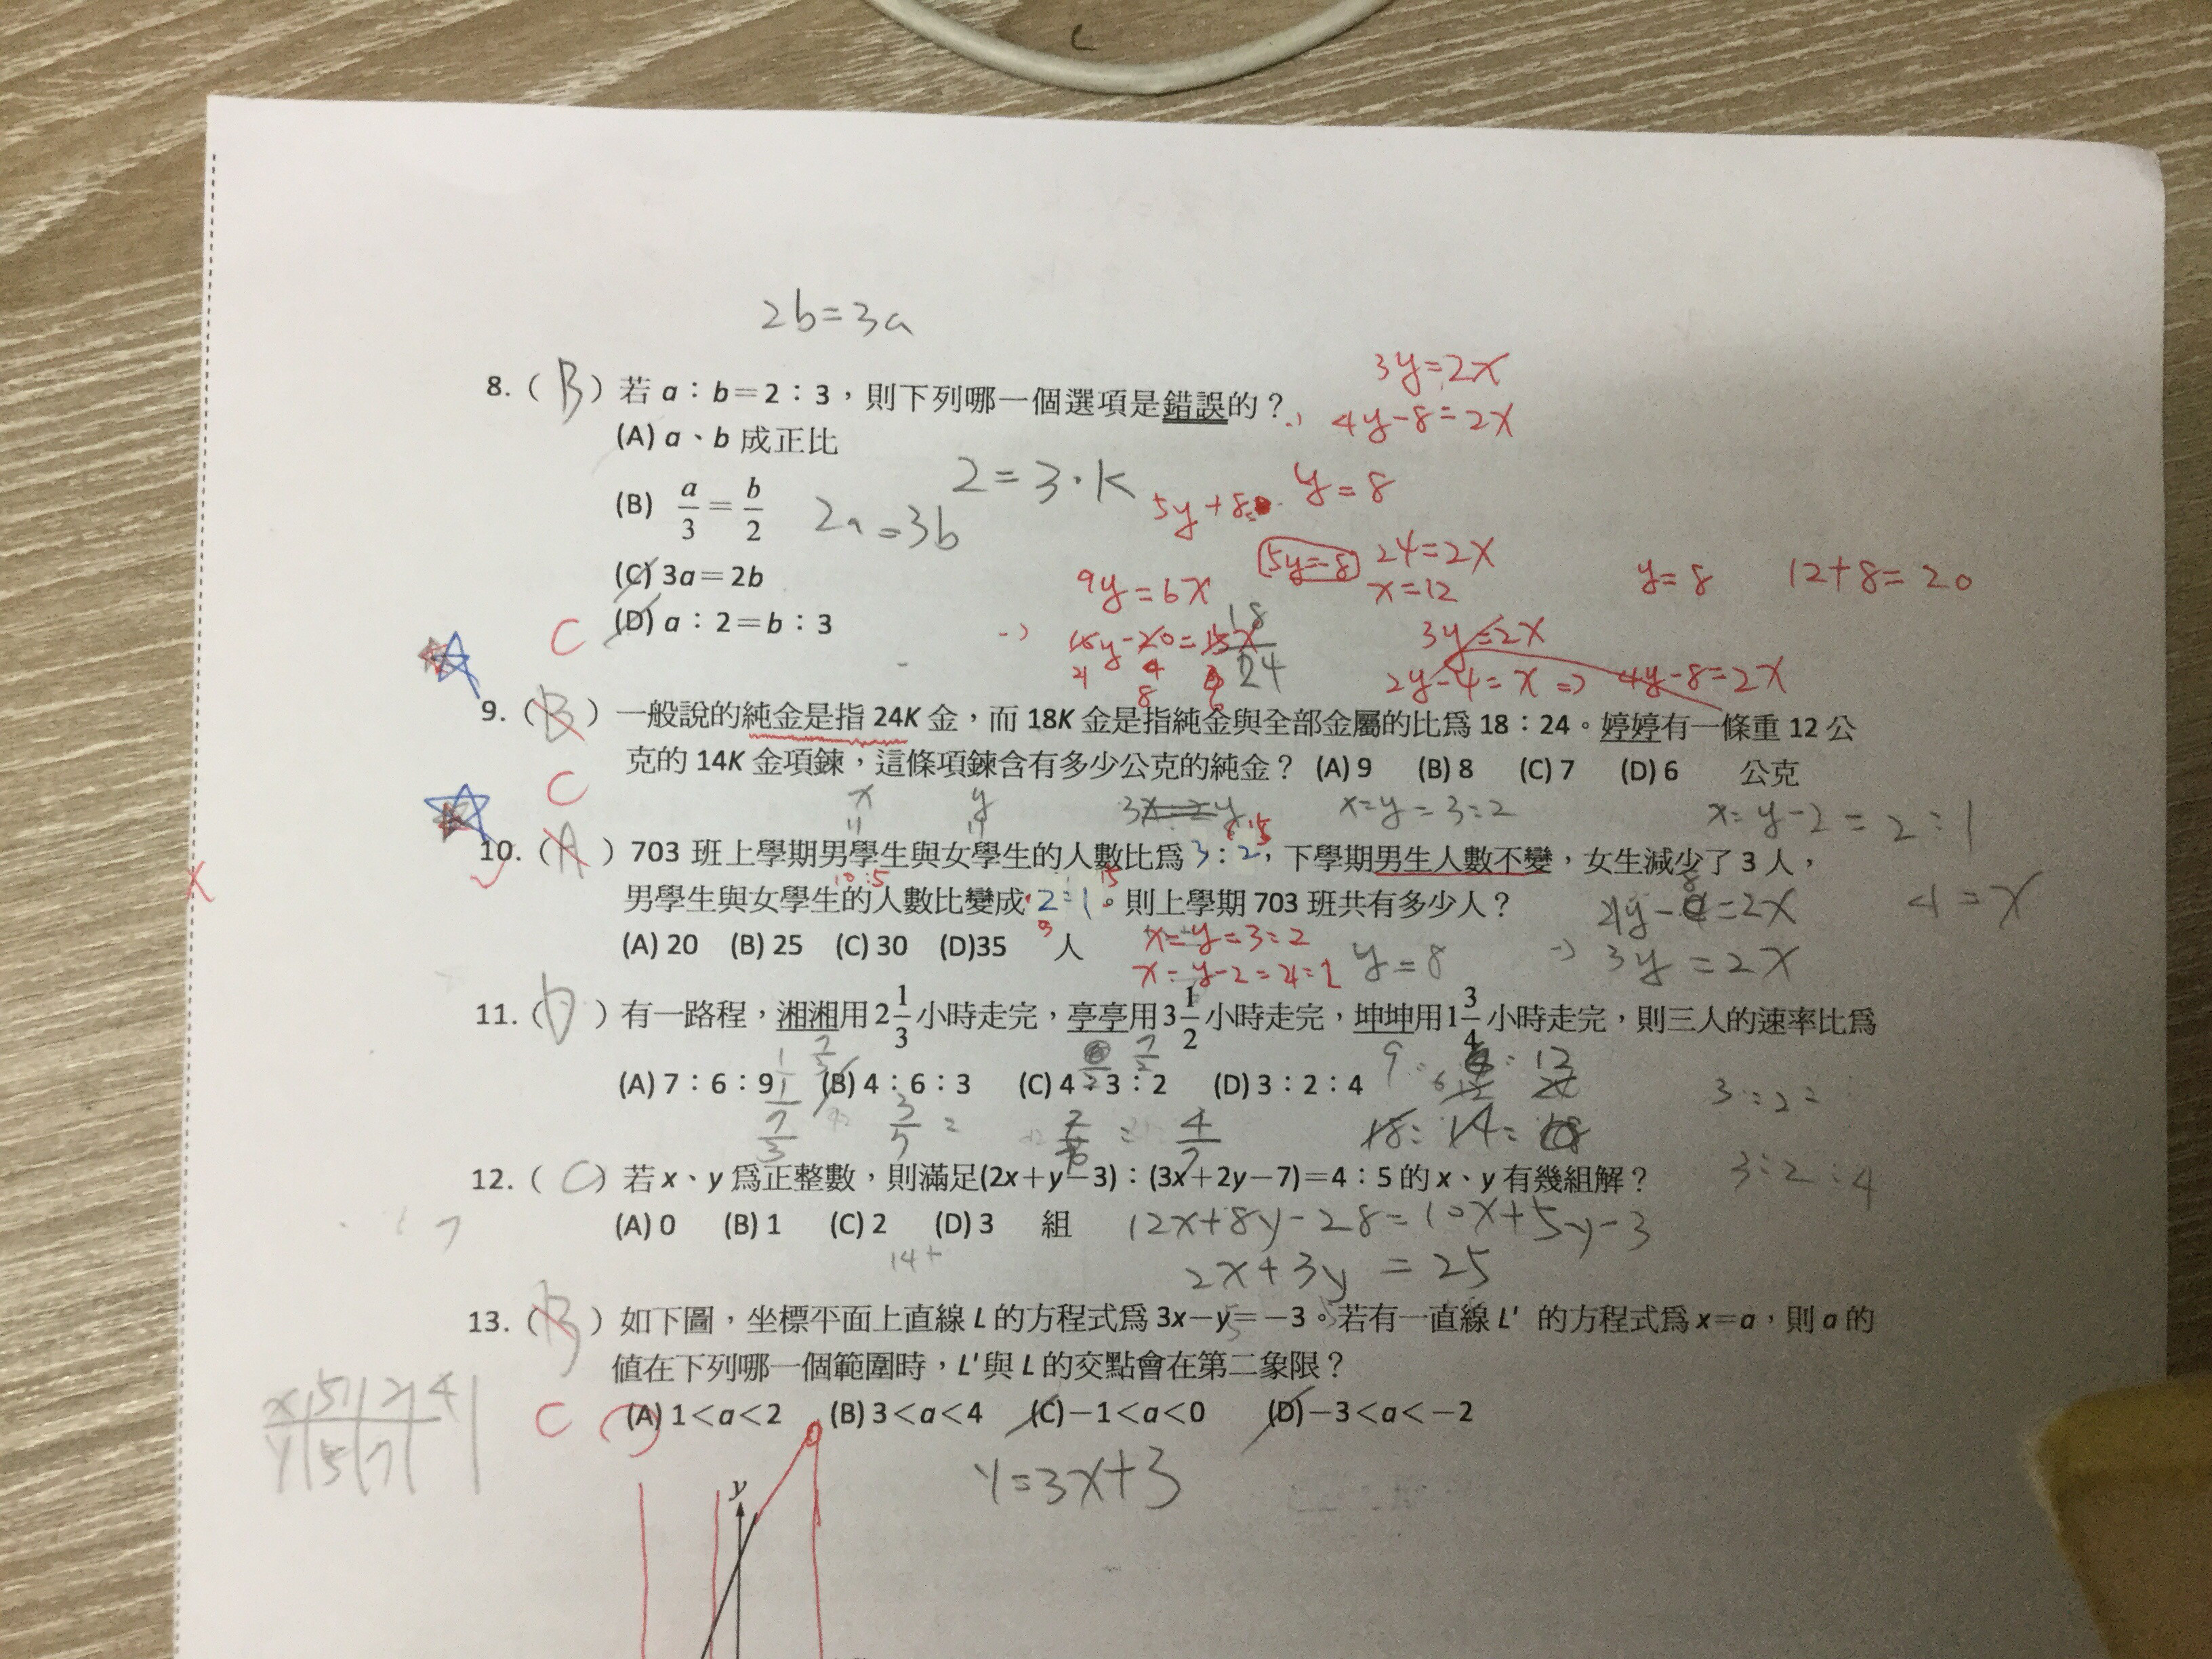 2b=3a
8.（B）若 a：b＝2：3，則下列哪一個選項是錯誤的？
3y=2x
4y-8=2x
(A) a、b 成正比
2=3·k
y=8
5y+8
(B) a/3＝b/2
2a=3b
5y=8
24=2x
x=12
y=8
12+8=20
(C) 3a＝2b
9y=6x
(D) a：2＝b：3
18/24
3y=2x
2y-4=x => 4y-8=2x
C
9.（B）一般說的純金是指 24K 金，而 18K 金是指純金與全部金屬的比爲 18：24。婷婷有一條重 12 公
克的 14K 金項鍊，這條項鍊含有多少公克的純金？ (A) 9 (B) 8 (C) 7 (D) 6 公克
C
x y
3x=2y
x=y=3:2
x:y-2=2:1
10.（A）703 班上學期男學生與女學生的人數比爲 3:2，下學期男生人數不變，女生減少了 3 人，
10:5
男學生與女學生的人數比變成 2:1。則上學期 703 班共有多少人？
4y-8=2x
4=x
(A) 20 (B) 25 (C) 30 (D)35 人
x=y=3:2
x:y-2=2:1
y=8
3y=2x
11.（D）有一路程，湘湘用 2 1/3 小時走完，亭亭用 3 1/2 小時走完，坤坤用 1 3/4 小時走完，則三人的速率比爲
(A) 7：6：9 (B) 4：6：3 (C) 4：3：2 (D) 3：2：4
3:2:
3:2:4
12.（C）若 x、y 爲正整數，則滿足(2x＋y－3)：(3x＋2y－7)＝4：5 的 x、y 有幾組解？
(A) 0 (B) 1 (C) 2 (D) 3 組
12x+8y-28=10x+5y-3
14+
2x+3y=25
13.（B）如下圖，坐標平面上直線 L 的方程式爲 3x－y＝－3。若有一直線 L' 的方程式爲 x＝a，則 a 的
值在下列哪一個範圍時，L'與 L 的交點會在第二象限？
C
(A) 1＜a＜2 (B) 3＜a＜4 (C)－1＜a＜0 (D)－3＜a＜－2
x 5 2 4
y 5 7
y=3x+3
y